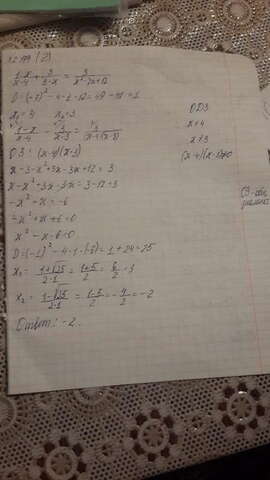 (2)
1-x/x-4 + 3/3-x = 3/x²-7x+12
D=(-7)²-4·1·12=49-48=1
x₁=4 x₂=3
1-x/x-4 - 3/x-3 = 3/(x-4)(x-3)
ОЗ: (x-4)(x-3)
x-3-x²+3x-3x+12=3
x-x²+3x-3x=3-12+3
-x²+x=-6
-x²+x+6=0
x²-x-6=0
D=(-1)²-4·1·(-6)=1+24=25
x₁= 1+√25/2·1 = 1+5/2 = 6/2 =3
x₂= 1-√25/2·1 = 1-5/2 = -4/2 =-2
Ответ: -2.
ОДЗ
x≠4
x≠3
(x-4)(x-3)≠0